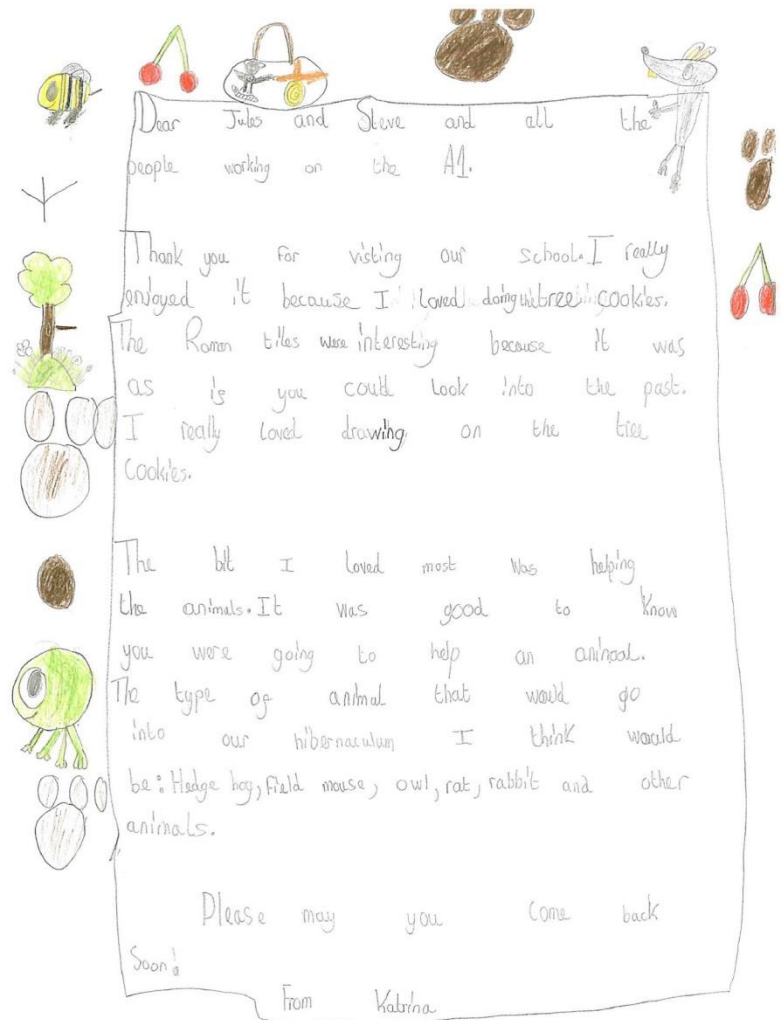 Dear Jules and Steve and all the
people working on the A1.
Thank you for visting our school. I really
enjoyed it because I loved doing the tree cookies.
The Roman tiles were interesting because it was
as is you could look into the past.
I really loved drawing on the tree
cookies.
The bit I loved most was helping
the animals. It was good to know
you were going to help an animal.
The type of animal that would go
into our hibernaculum I think would
be: Hedge hog, field mouse, owl, rat, rabbit and other
animals.
Please may you come back
Soon!
From Katrina